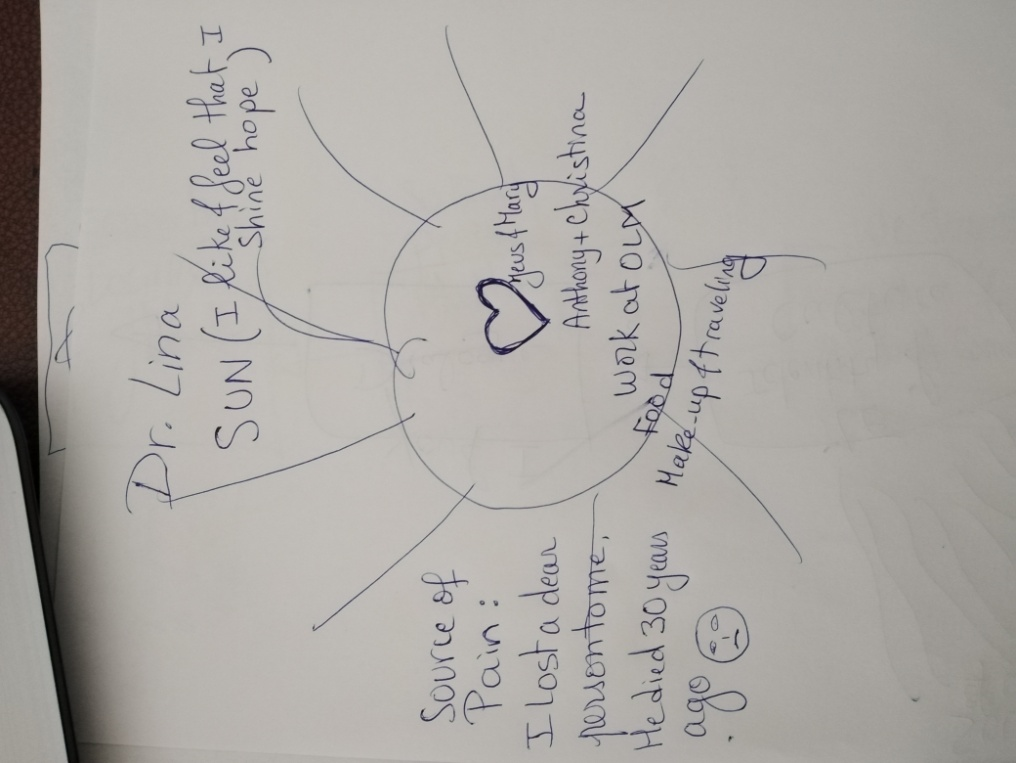 Dr. Lina
SUN (I like & feel that I
shine hope)
Jeus & Mary
Anthony + Christina
Work at OLM
Food
Make-up & traveling
Source of
Pain:
I Lost a dear
person to me.
He died 30 years
ago.